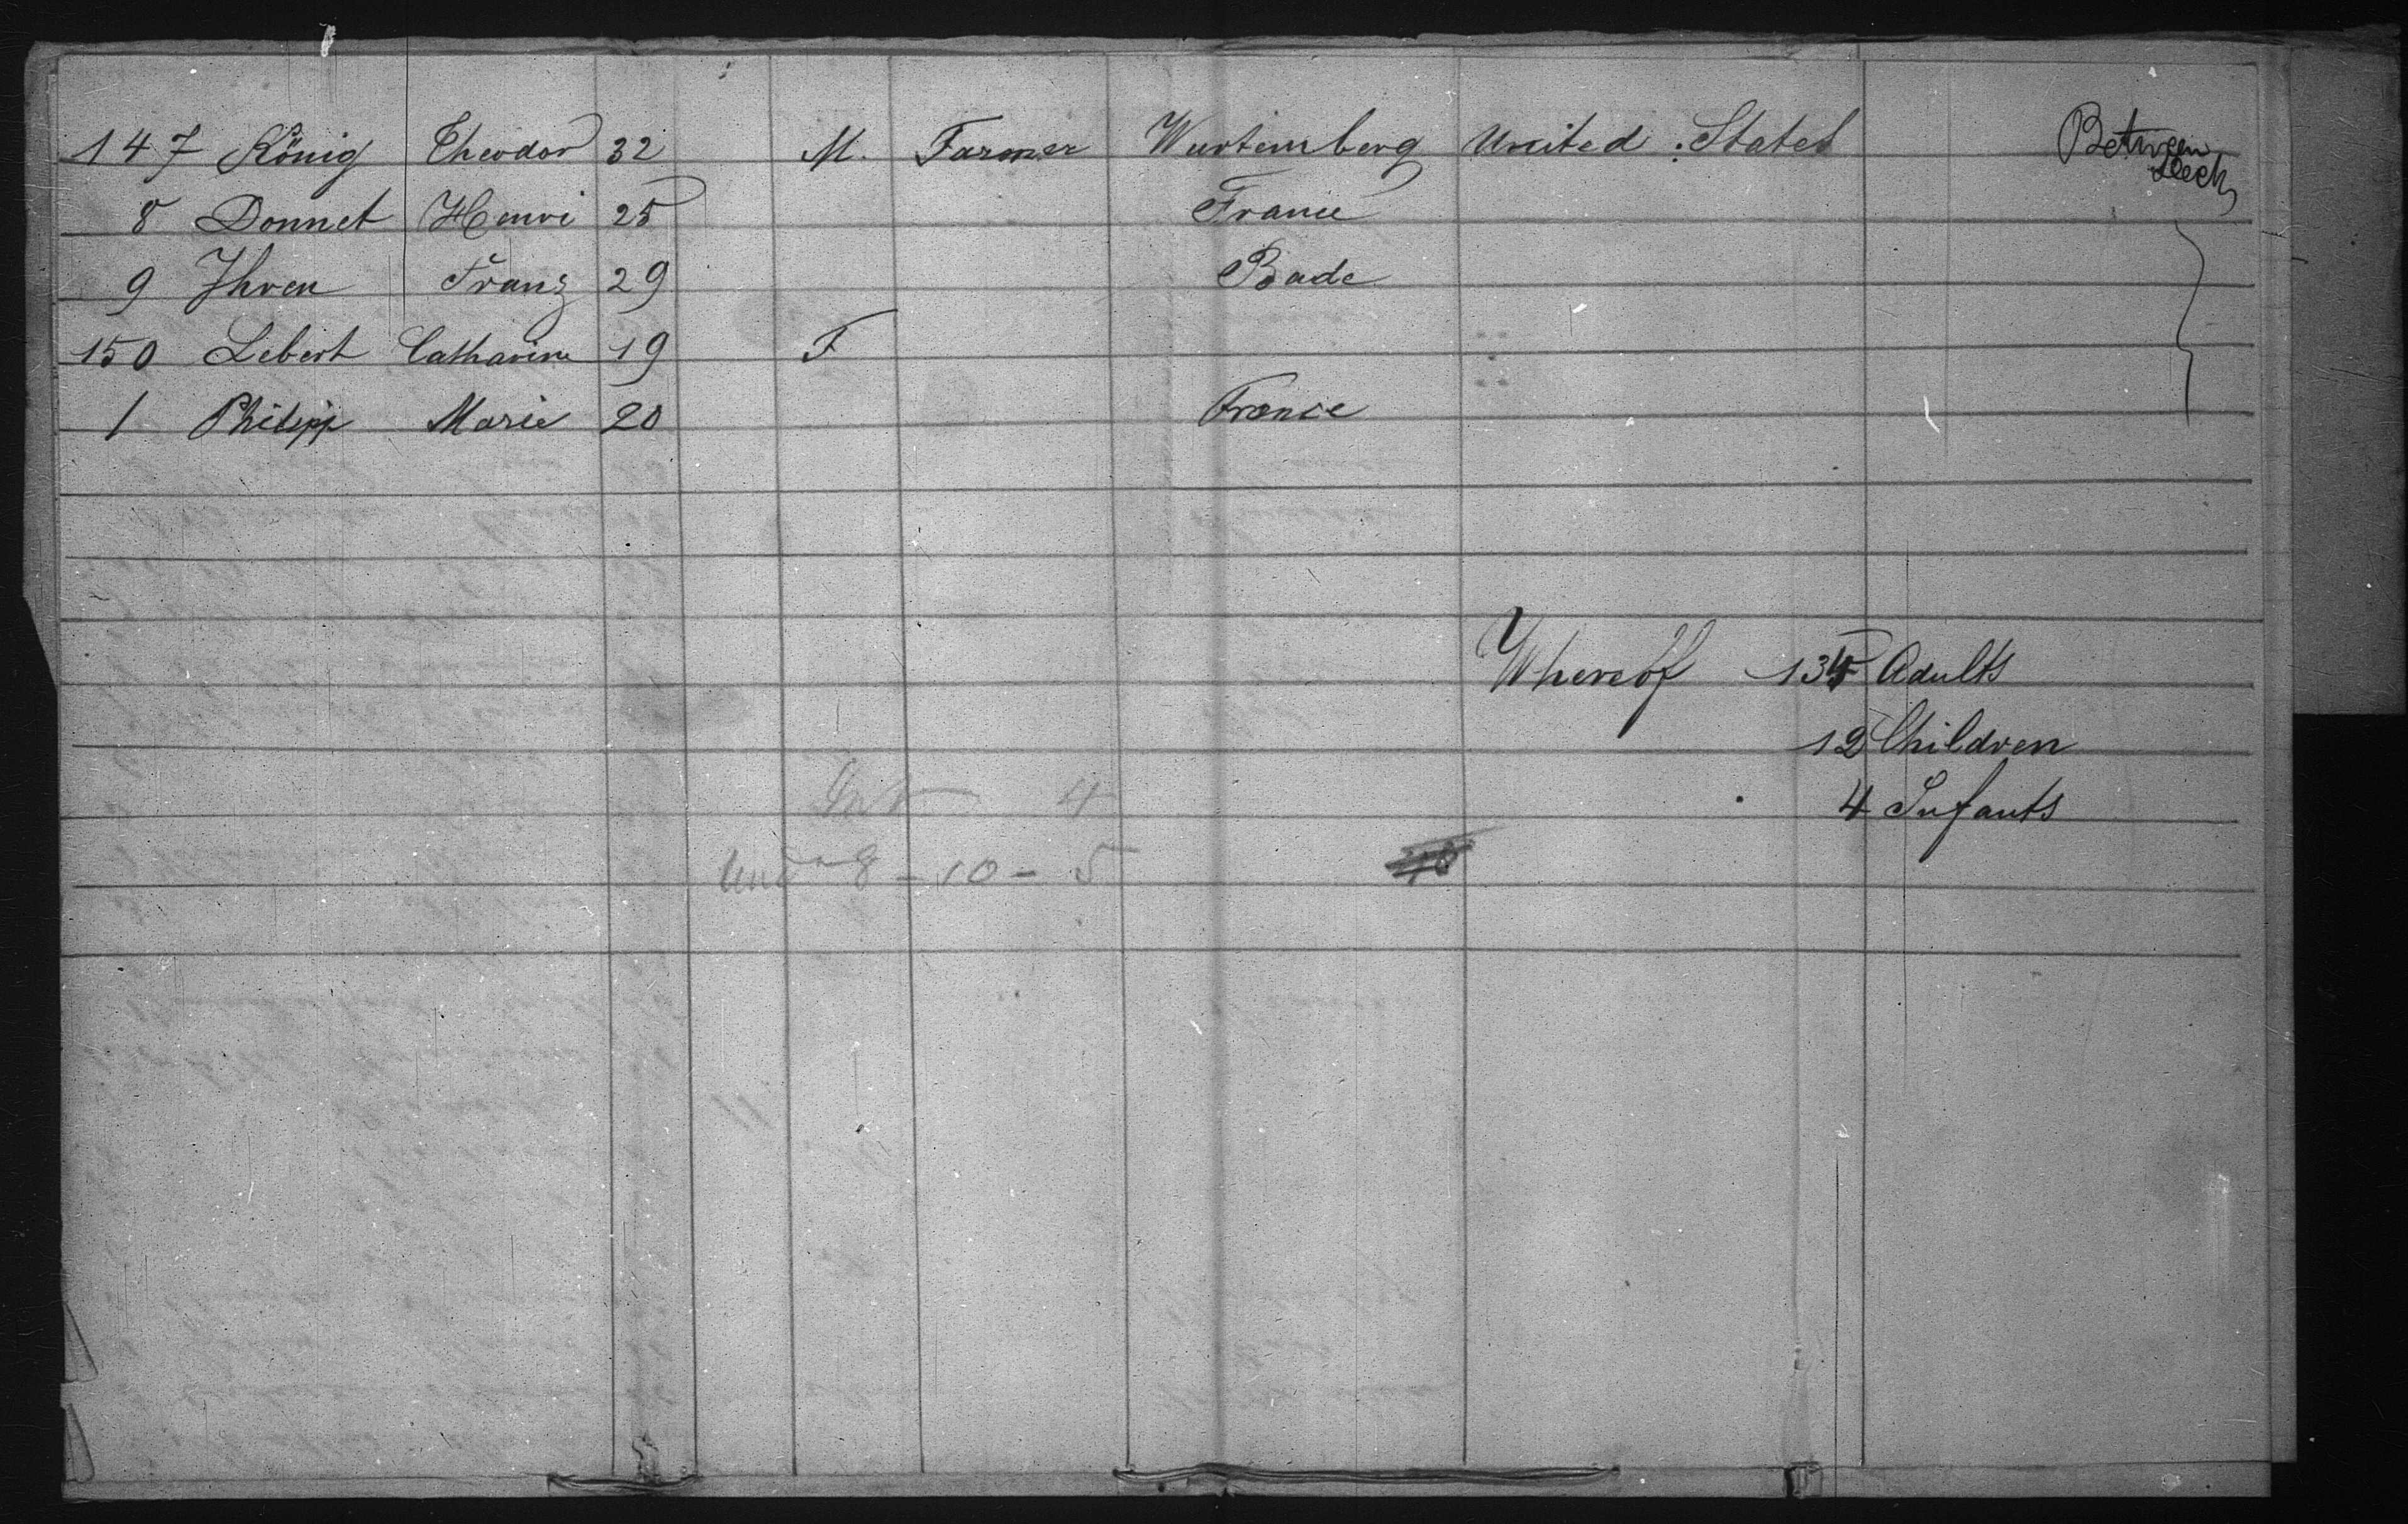 147 König Theodor 32 M. Farmer Wurtemberg United States Between Deck
8 Donnet Henri 25 France
9 Ihren Franz 29 Bade
150 Lebert Catharine 19 F
1 Philipp Marie 20 France
Whereof 135 Adults
12 Children
4 Infants
Inf 4
Und 8 - 10 - 5